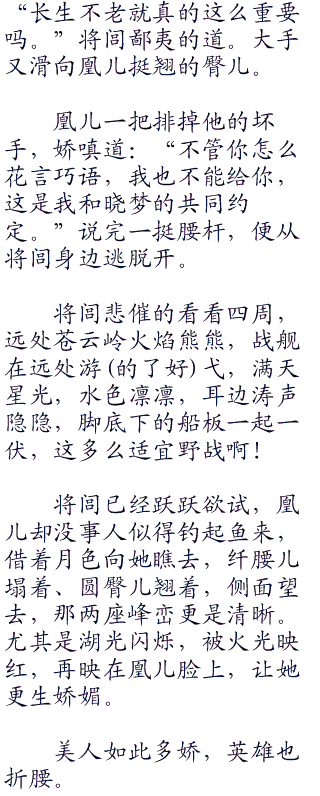 “长生不老就真的这么重要
吗。”将闾鄙夷的道。大手
又滑向凰儿挺翘的臀儿。
凰儿一把排掉他的坏
手，娇嗔道：“不管你怎么
花言巧语，我也不能给你，
这是我和晓梦的共同约
定。”说完一挺腰杆，便从
将闾身边逃脱开。
将闾悲催的看看四周，
远处苍云岭火焰熊熊，战舰
在远处游(的了好)弋，满天
星光，水色凛凛，耳边涛声
隐隐，脚底下的船板一起一
伏，这多么适宜野战啊！
将闾已经跃跃欲试，凰
儿却没事人似得钓起鱼来，
借着月色向她瞧去，纤腰儿
塌着、圆臀儿翘着，侧面望
去，那两座峰峦更是清晰。
尤其是湖光闪烁，被火光映
红，再映在凰儿脸上，让她
更生娇媚。
美人如此多娇，英雄也
折腰。